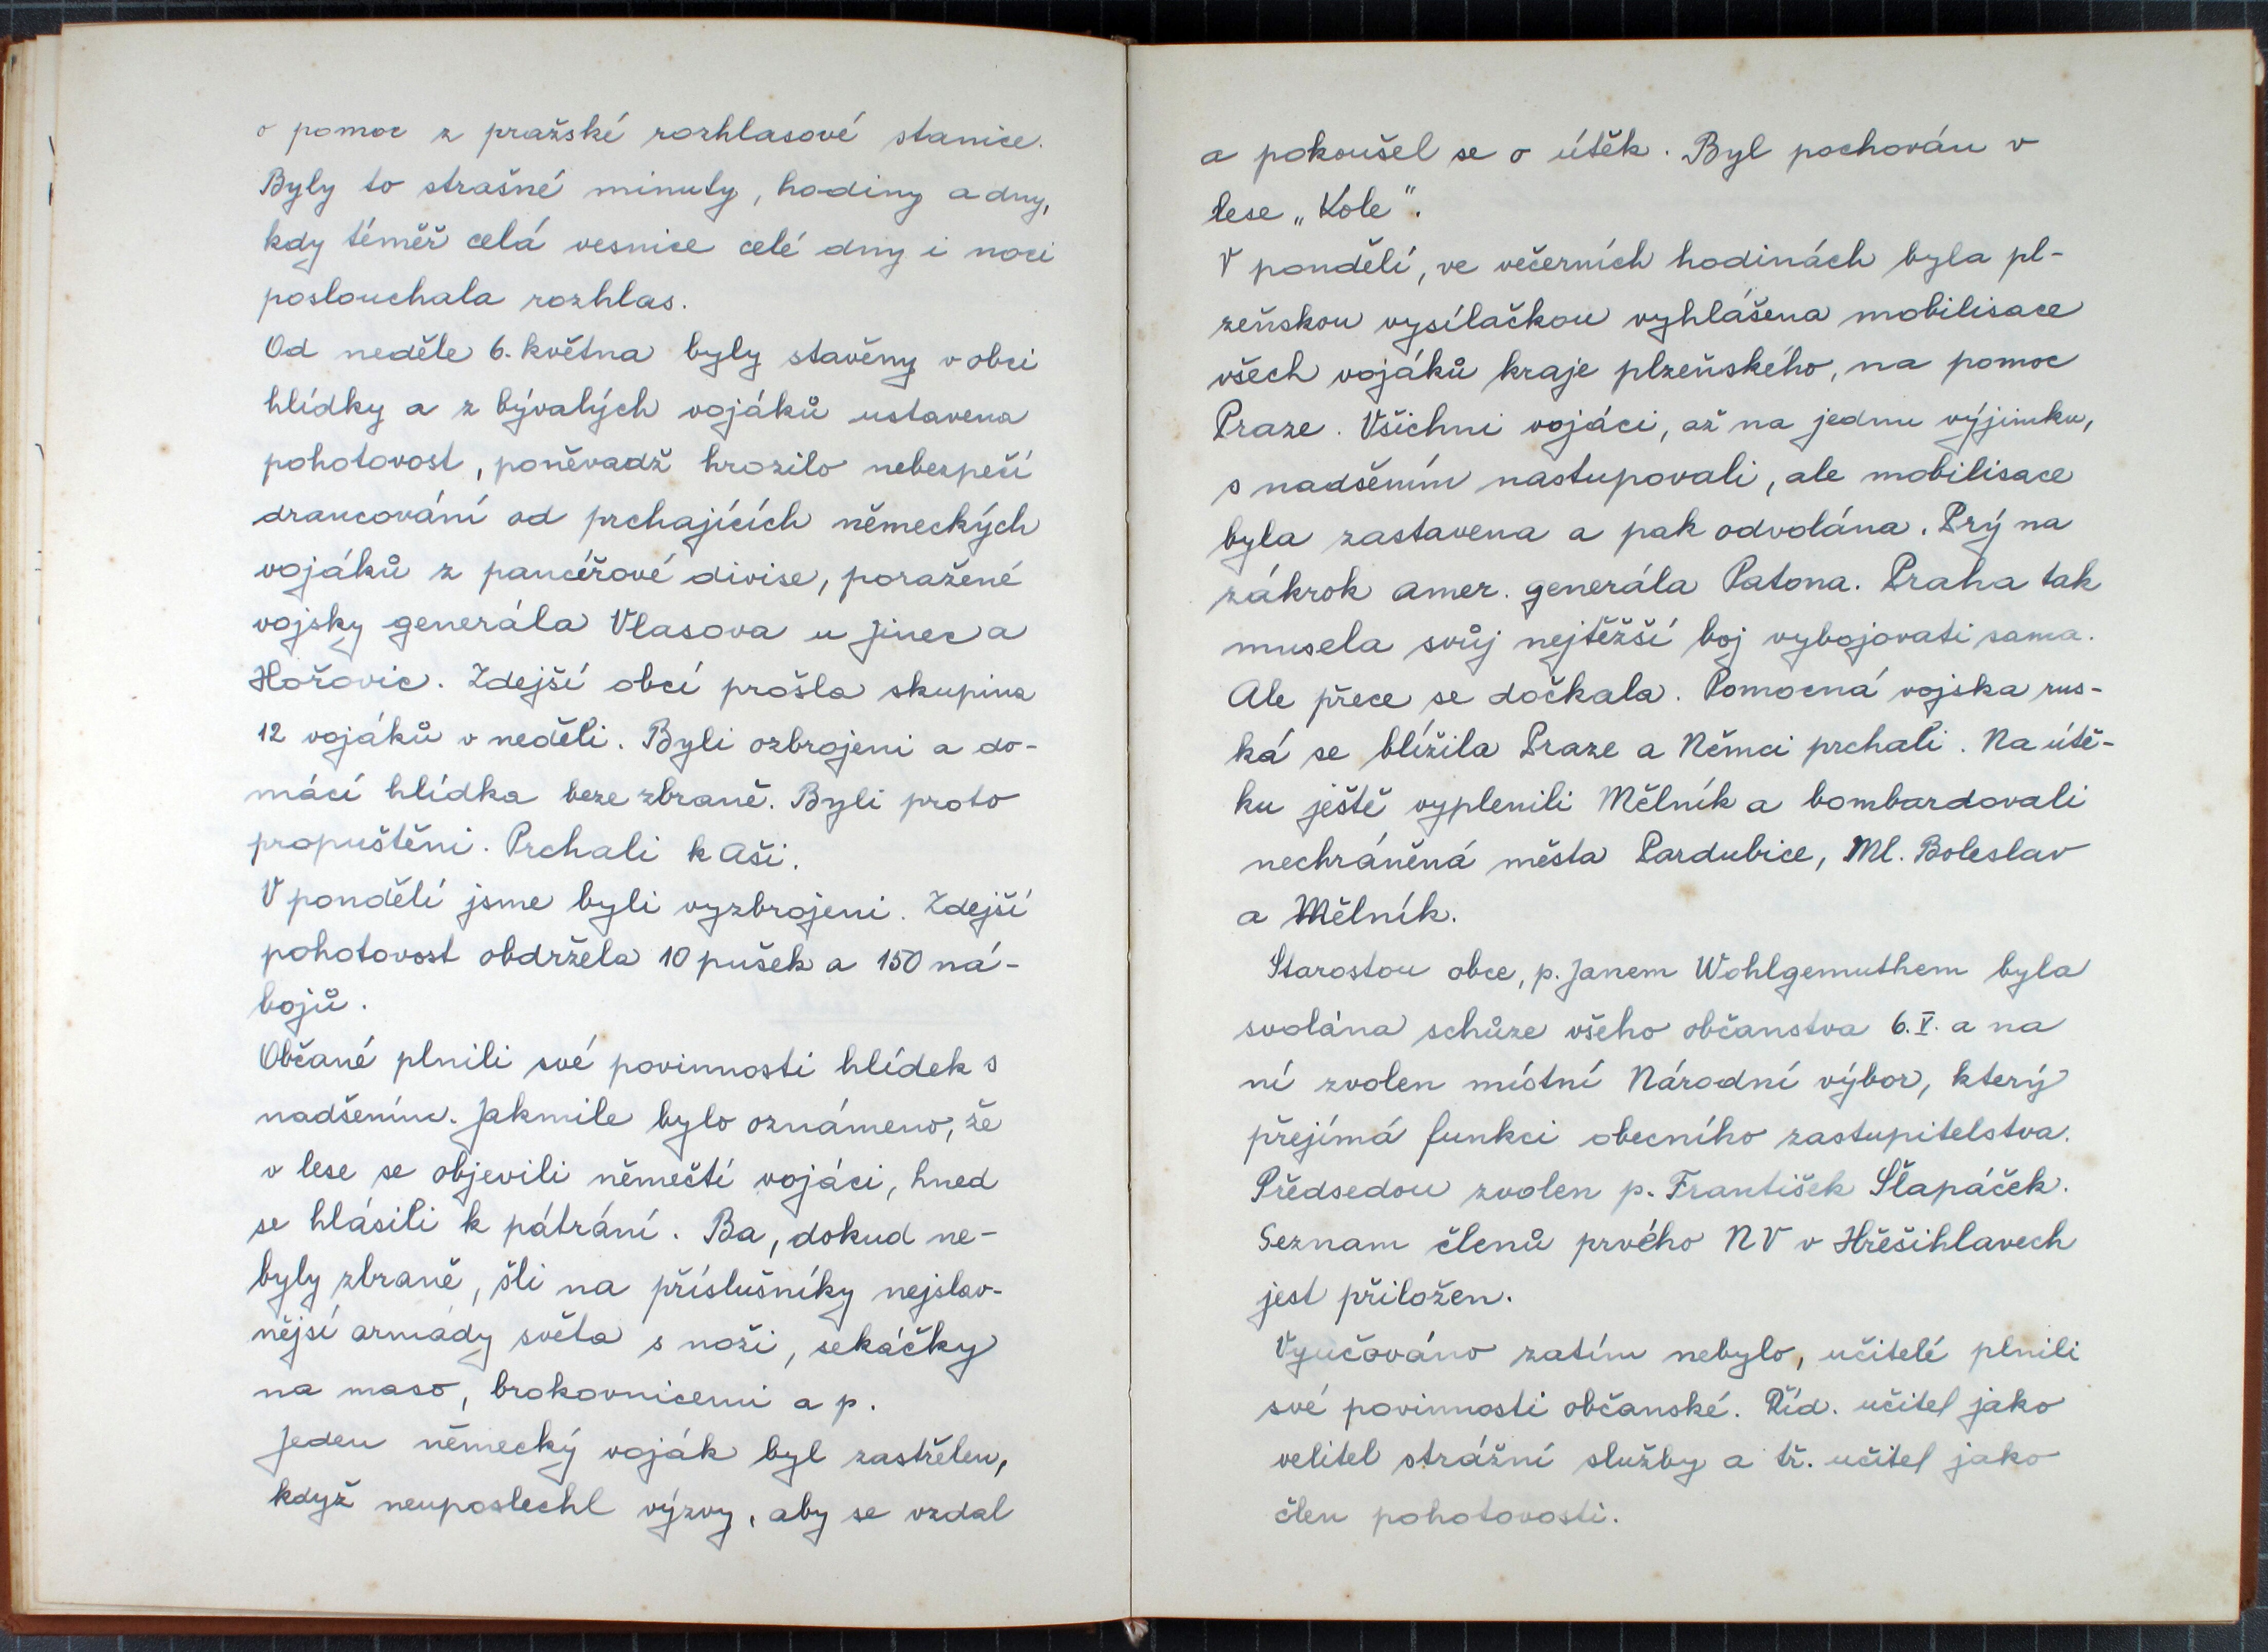 o pomoc z pražské rozhlasové stanice.
Byly to strašné minuty, hodiny a dny,
kdy téměř celá vesnice celé dny i noci
poslouchala rozhlas.
Od neděle 6. května byly stavěny v obci
hlídky a z bývalých vojáků ustavena
pohotovost, poněvadž hrozilo nebezpečí
drancování od prchajících německých
vojáků z pancéřové divise, poražené
vojsky generála Vlasova u Jinec a
Hořovic. Zdejší obcí prošla skupina
12 vojáků v neděli. Byli ozbrojeni a do-
mácí hlídka beze zbraně. Byli proto
propuštěni. Prchali k Aši.
V pondělí jsme byli vyzbrojeni. Zdejší
pohotovost obdržela 10 pušek a 150 ná-
bojů.
Občané plnili své povinnosti hlídek s
nadšením. Jakmile bylo oznámeno, že
v lese se objevili němečtí vojáci, hned
se hlásili k pátrání. Ba, dokud ne-
byly zbraně, šli na příslušníky nejslav-
nější armády světa s noži, sekáčky
na maso, brokovnicemi a p.
Jeden německý voják byl zastřelen,
když neuposlechl výzvy, aby se vzdal
a pokoušel se o útěk. Byl pochován v
lese „Kole".
V pondělí, ve večerních hodinách byla pl-
zeňskou vysílačkou vyhlášena mobilisace
všech vojáků kraje plzeňského, na pomoc
Praze. Všichni vojáci, až na jednu výjimku,
s nadšením nastupovali, ale mobilisace
byla zastavena a pak odvolána. Prý na
zákrok amer. generála Patona. Praha tak
musela svůj nejtěžší boj vybojovati sama.
Ale přece se dočkala. Pomocná vojska rus-
ká se blížila Praze a Němci prchali. Na útě-
ku ještě vyplenili Mělník a bombardovali
nechráněná města Pardubice, Ml. Boleslav
a Mělník.
Starostou obce, p. Janem Wohlgemuthem byla
svolána schůze všeho občanstva 6.V. a na
ní zvolen místní Národní výbor, který
přejímá funkci obecního zastupitelstva.
Předsedou zvolen p. František Šlapáček.
Seznam členů prvého NV v Hřešihlavech
jest přiložen.
Vyučováno zatím nebylo, učitelé plnili
své povinnosti občanské. Říd. učitel jako
velitel strážní služby a tř. učitel jako
člen pohotovosti.